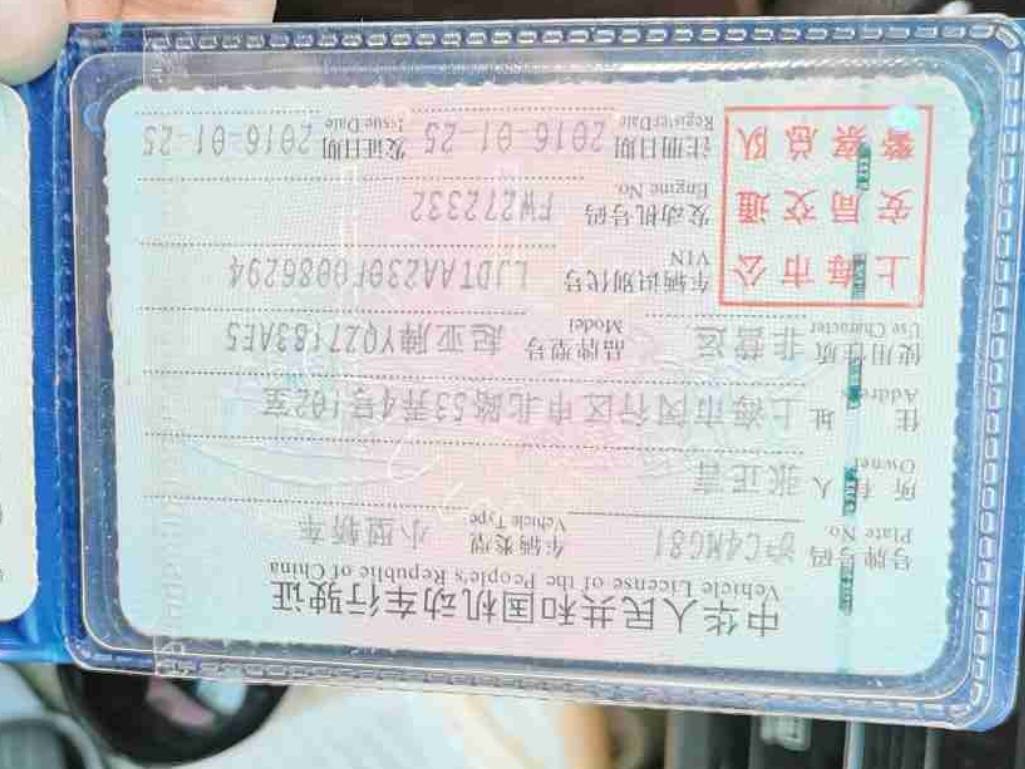 中华人民共和国机动车行驶证
Vehicle License of the People's Republic of China
号牌号码 沪C4MG81 车辆类型 小型轿车
Plate No. Vehicle Type
所有人 张正言
Owner
住址 上海市闵行区申北路53弄4号102室
Address
使用性质 非营运 品牌型号 起亚牌YQZ7183AE5
Use Character Model
上海市公安局交通警察总队
车辆识别代号 LJDTAA230F0086294
VIN
发动机号码 FW272332
Engine No.
注册日期 2016-01-25 发证日期 2016-01-25
Register Date Issue Date